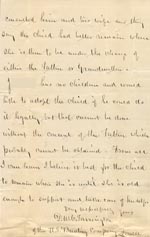 concerted him and his wife and they
say the child had better remain where
she is then to be under the charge of
either the father or Grandmother.
I have no children and would
like to adopt the child if he could do
it legally but that cannot be done
without the consent of the father which
probably cannot be obtained. From all
I can learn I believe it bad for the child
to remain when she is until she is old
enough to support and take care of herself
Very respectfully yours
of the U.S. Company